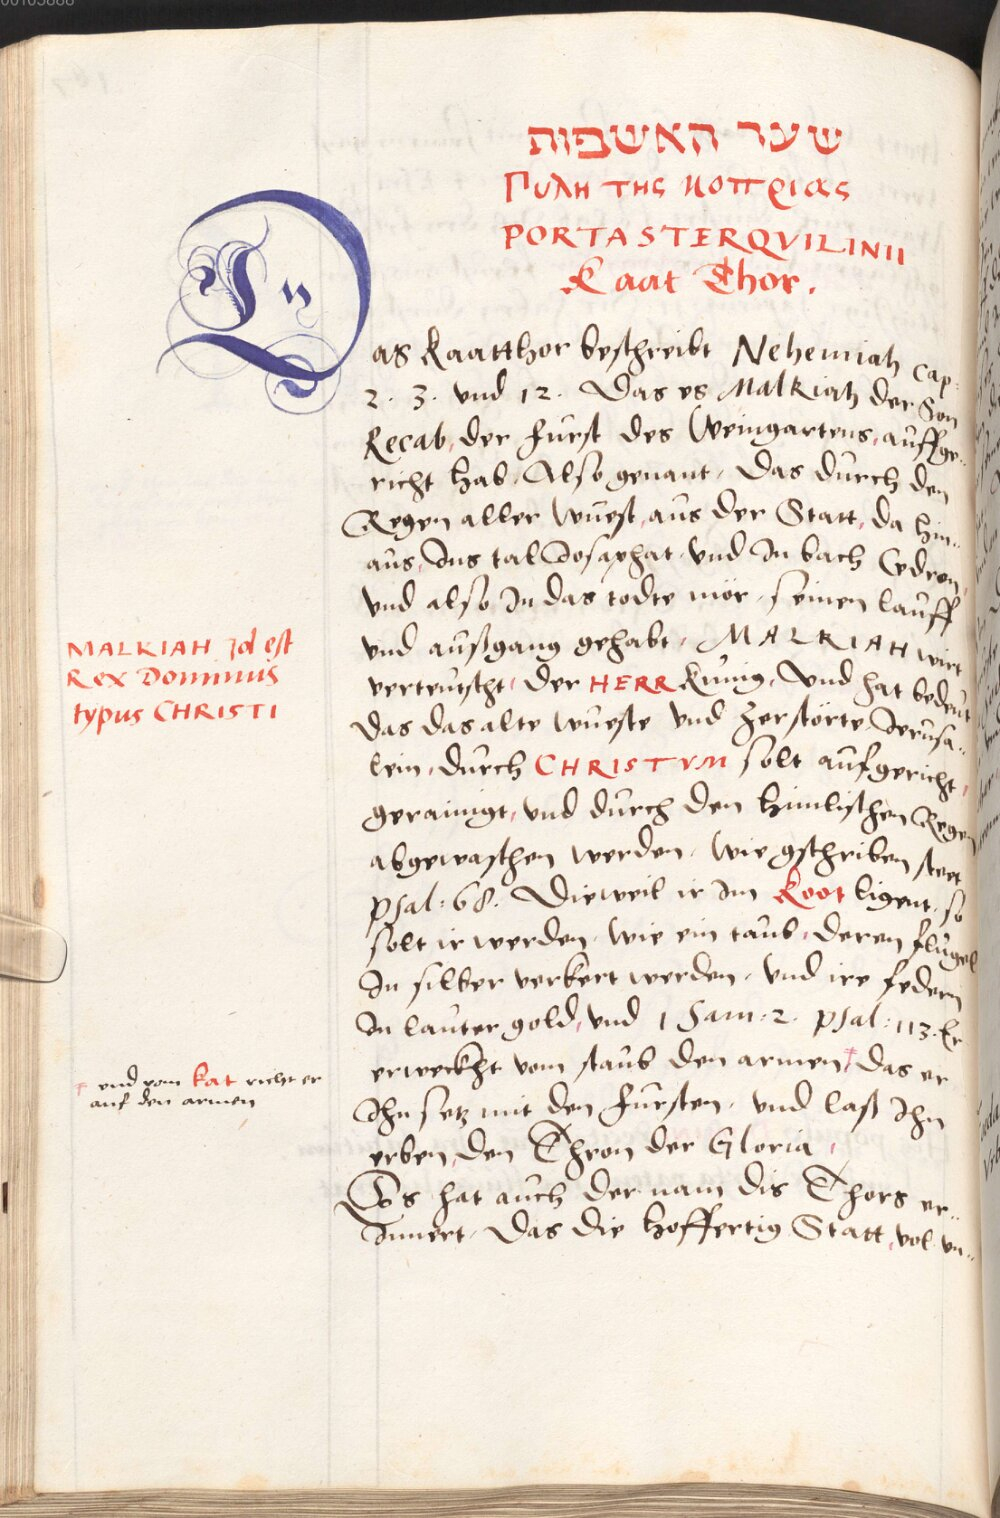 00103888
שער האשפות
Πυλη της κοπριας
PORTA STERQVILINII
Kaat Thor.
Das Kaatthor beschreibt Nehemiah cap:
2. 3. vnd 12. Das es Malkiah der Son
Recab, der Furst des Weingartens, auffge-
richt hab, Also genant, Das durch den
Regen aller wuest, aus der Statt, da hin-
aus, Ins tal Iosaphat, vnd In bach Cedron,
vnd also In das todte mör, seinen lauff
vnd außgang gehabt, MALKIAH wirt
verteutscht, der HERR Kunig, Vnd hat bedeut
das das alte wueste vnd Zerstörte Ierusa-
lem, durch CHRISTVM solt aufgericht,
gerainigt, vnd durch den himlischen Regen
abgewaschen werden, wie gschriben steet
psal: 68. Dieweil ir Im Koot ligent, so
solt ir werden, wie ein taub, deren flugel
In silber verkert werden, vnd ire federn
In lauter gold, vnd 1 Sam: 2. psal: 113. Er
erweckht vom staub den armen, das er
Ihn setz mit den Fursten, vnd lass Ihn
erben den Thron der Gloria,
Es hat auch der nam dis Thors er-
Innert, Das die hoffertig Statt, vol vn-
MALKIAH id est
Rex Dominus
typus CHRISTI
vnd vom kat richt er
auf den armen